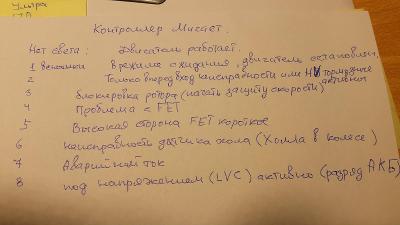 Ультра
Контроллер Мигает.
Нет света: Двигатель работает.
1 вспышки В режиме ожидания, двигатель остановлен,
2 Только вперед вход неисправности или тормозные активны
3 блокировка ротора (начать защиту скорости)
4 Проблема с FET
5 Высокая сторона FET короткое
6 неисправность датчика хола (Холла в колесе)
7 Аварийный ток
8 под напряжением (LVC) активно (разряд АКБ)